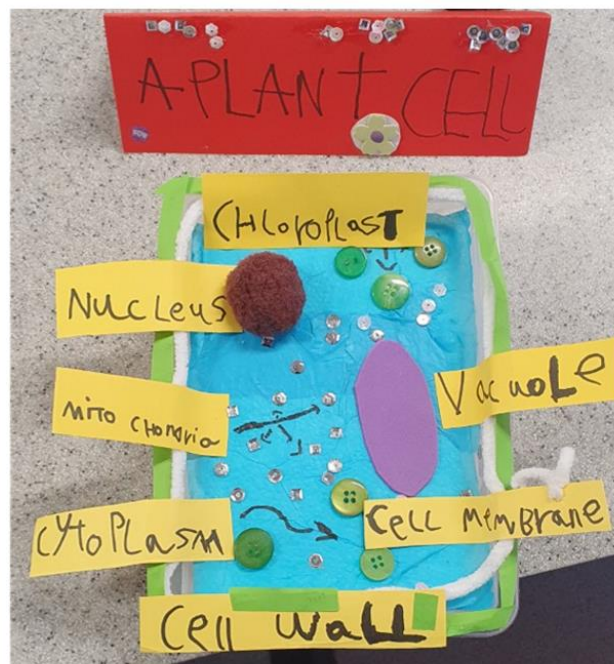 A PLANT CELL
CHloroplasT
Nucleus
mito chondria
Vacuole
cytoplasm
cell membrane
cell wall